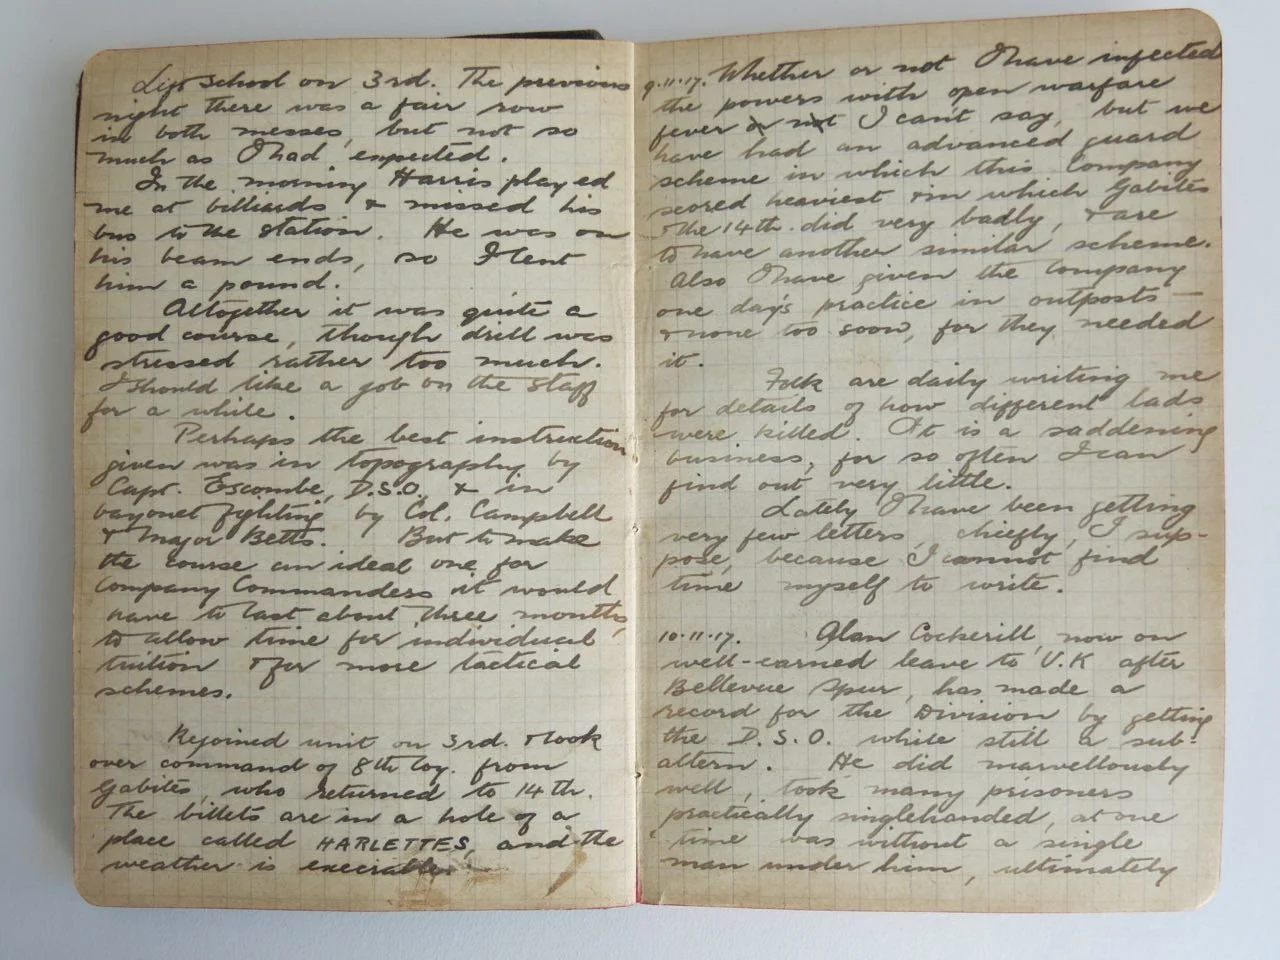 Left School on 3rd. The previous
night there was a fair row
in both messes, but not so
much as I had expected.
In the morning Harris played
me at billiards & missed his
bus to the station. He was on
his beam ends, so I lent
him a pound.
Altogether it was quite a
good course, though drill was
stressed rather too much.
I should like a job on the staff
for a while.
Perhaps the best instruction
given was in topography by
Capt. Escombe, D.S.O. & in
bayonet fighting by Col. Campbell
& Major Betts. But to make
the course an ideal one for
Company Commanders it would
have to last about three months,
to allow time for individual
tuition & for more tactical
schemes.
Rejoined unit on 3rd. & took
over command of 8th Coy. from
Gabites, who returned to 14th.
The billets are in a hole of a
place called HARLETTES, and the
weather is execrable.
9.11.17. Whether or not I have infected
the powers with open warfare
fever or not I can't say, but we
have had an advanced guard
scheme in which this Company
scored heaviest & in which Gabites
& the 14th. did very badly, & are
to have another similar scheme.
Also I have given the Company
one day's practice in outposts —
& none too soon, for they needed
it.
Folk are daily writing me
for details of how different lads
were killed. It is a saddening
business, for so often I can
find out very little.
Lately I have been getting
very few letters, chiefly, I sup-
pose, because I cannot find
time myself to write.
10.11.17. Alan Cockerill, now on
well-earned leave to U.K after
Bellevue Spur, has made a
record for the Division by getting
the D.S.O. while still a sub-
altern. He did marvellously
well, took many prisoners
practically singlehanded, at one
time was without a single
man under him, ultimately